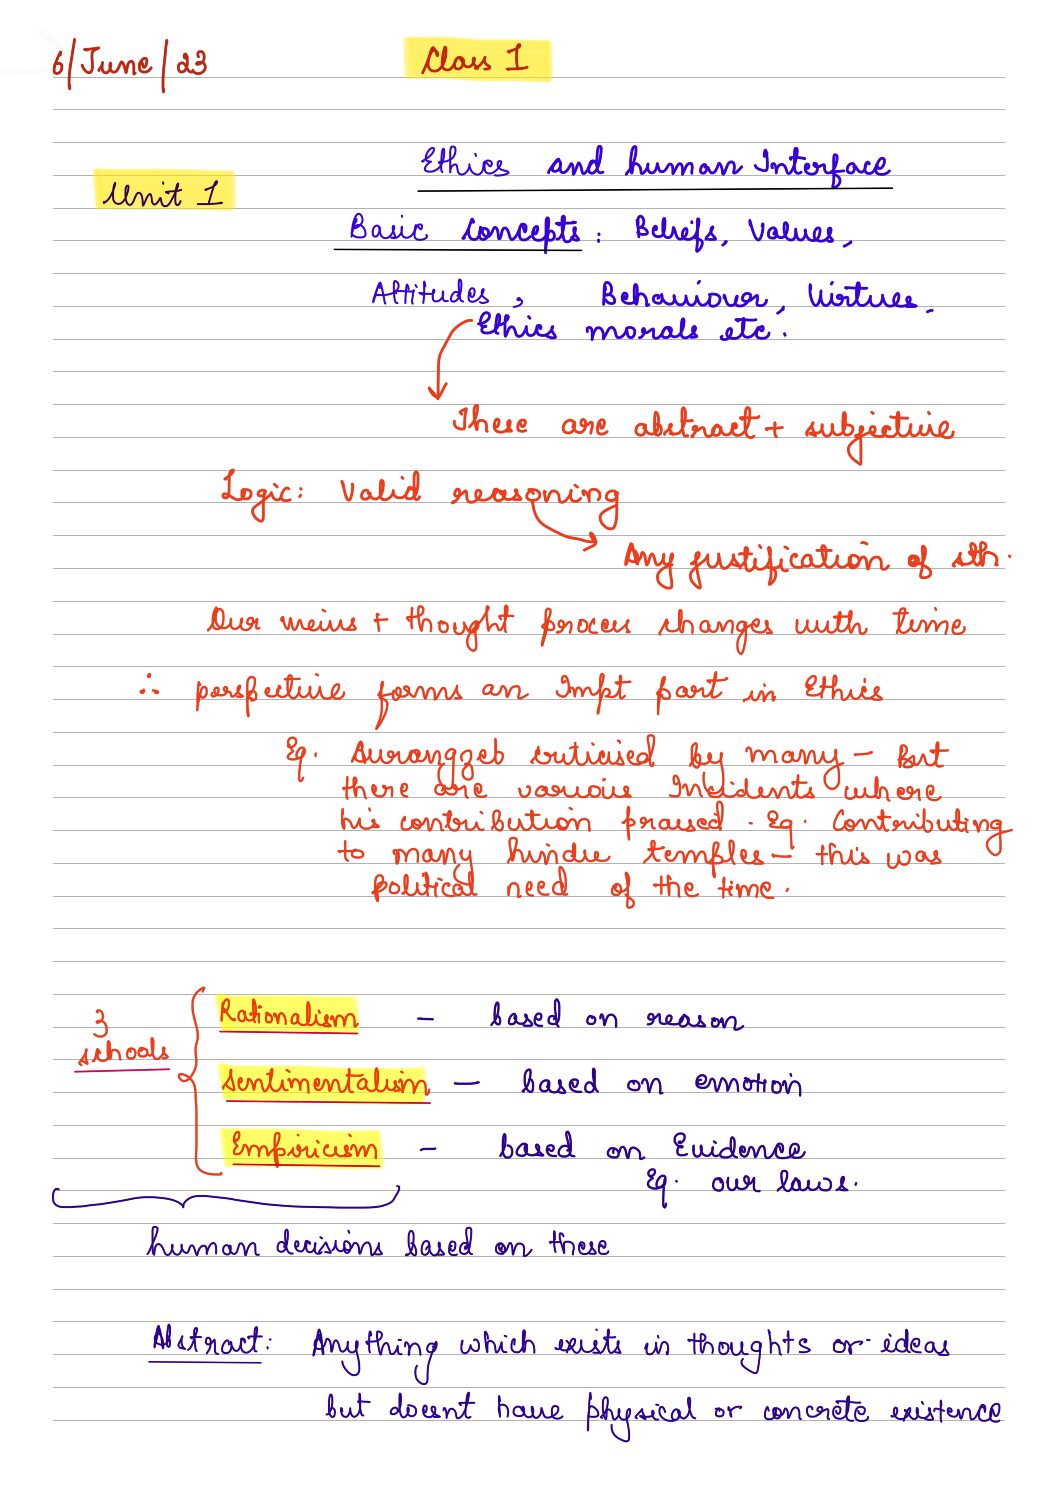 6/June/23
Class 1
Ethics and human Interface
Unit 1
Basic concepts: Beliefs, Values,
Attitudes, Behaviour, Virtues,
Ethics morals etc.
These are abstract + subjective
Logic: Valid reasoning
Any justification of sth.
Our + thought process changes with time
∴ perspective forms an Impt part in Ethics
Eg. Aurangzeb criticised by many - But
there are various Incidents where
his contribution praised. Eg. Contributing
to many hindu temples - this was
political need of the time.
3 schools
Rationalism - based on reason
Sentimentalism - based on emotion
Empiricism - based on Evidence
Eg. our laws.
human decisions based on these
Abstract: Anything which exists in thoughts or ideas
but doesnt have physical or concrete existence